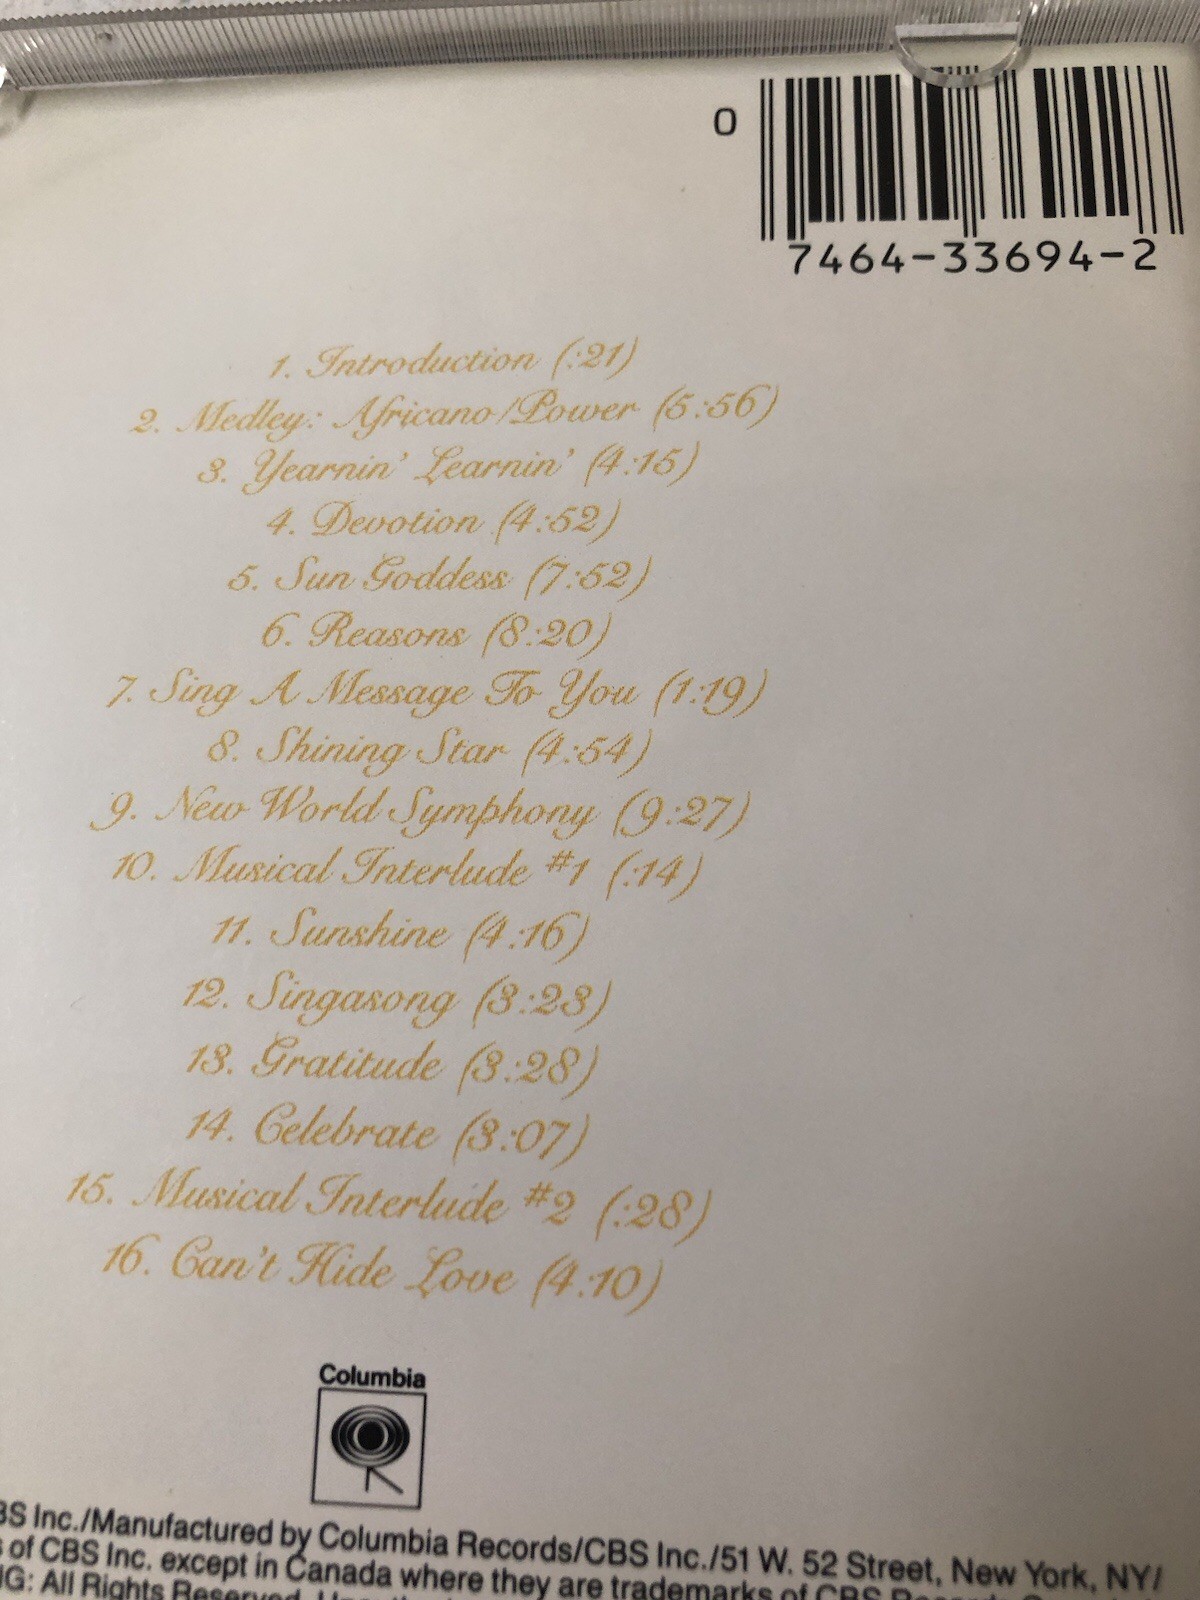 0
7464-33694-2
1. Introduction (:21)
2. Medley: Africano/Power (5:56)
3. Yearnin' Learnin' (4:15)
4. Devotion (4:52)
5. Sun Goddess (7:52)
6. Reasons (8:20)
7. Sing A Message To You (1:19)
8. Shining Star (4:54)
9. New World Symphony (9:27)
10. Musical Interlude #1 (:14)
11. Sunshine (4:16)
12. Singasong (3:23)
13. Gratitude (3:28)
14. Celebrate (3:07)
15. Musical Interlude #2 (:28)
16. Can't Hide Love (4:10)
Columbia
BS Inc./Manufactured by Columbia Records/CBS Inc./51 W. 52 Street, New York, NY/
of CBS Inc. except in Canada where they are trademarks of CBS
G: All Rights Reserved.